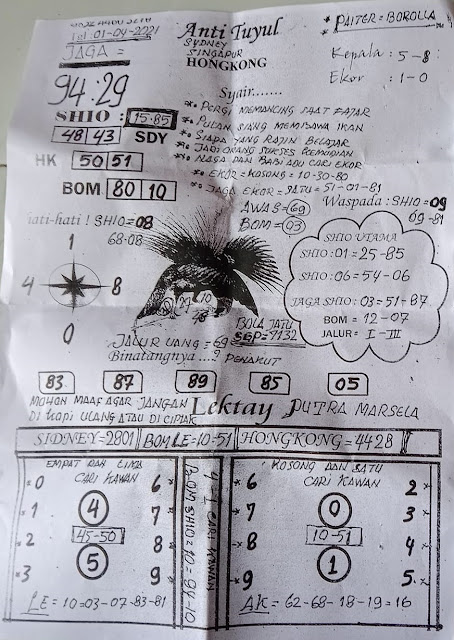 Tgl 01-04-2021
JAGA =
94·29
SHIO : 15·85
48 43 SDY
HK 50 51
BOM 80 10
Anti Tuyul
SYDNEY
SINGAPUR
HONGKONG
* PAITER = BOROLLA *
Kepala : 5-8
Ekor : 1-0
Syair.......
* PERGI MEMANCING SAAT FAJAR
* PULAN SIANG MEMBAWA IKAN
* SIAPA YANG RAJIN BELAJAR
* JADI ORANG SUKSES KEMUDIAN
* NAGA DAN BABI ADU CARI EKOR
* EKOR = KOSONG = 10-30-80
* JAGA EKOR = SATU = 51-01-81
AWAS = 69
BOM = 03
Waspada : SHIO = 09
69-81
Hati-hati ! SHIO = 08
68·08
1
4
8
0
SHIO UTAMA
SHIO : 01 = 25-85
SHIO : 06 = 54-06
JAGA SHIO : 03 = 51-87
BOM = 12-07
JALUR = I-III
BOLA JATU
SGP = 9132
JALUR UANG = 69
Binatangnya ...? PENAKUT
83 87 89 85 05
MOHON MAAF AGAR JANGAN
DI KOPI ULANG ATAU DI CIPLAK
Lektay PUTRA MARSELA
SIDNEY = 2801 BOM LE = 10-51 HONGKONG = 4428
EMPAT DAN LIMA
CARI KAWAN
0 6
1 4 7
2 45-50 8
3 5 9
LE = 10=03-07-83-81
4-1 CARI KAWAN
BOM SHIO = 10 = 94-10
KOSONG DAN SATU
CARI KAWAN
6 2
7 0 3
8 10-51 4
9 1 5
AK = 62-68-18-19=16